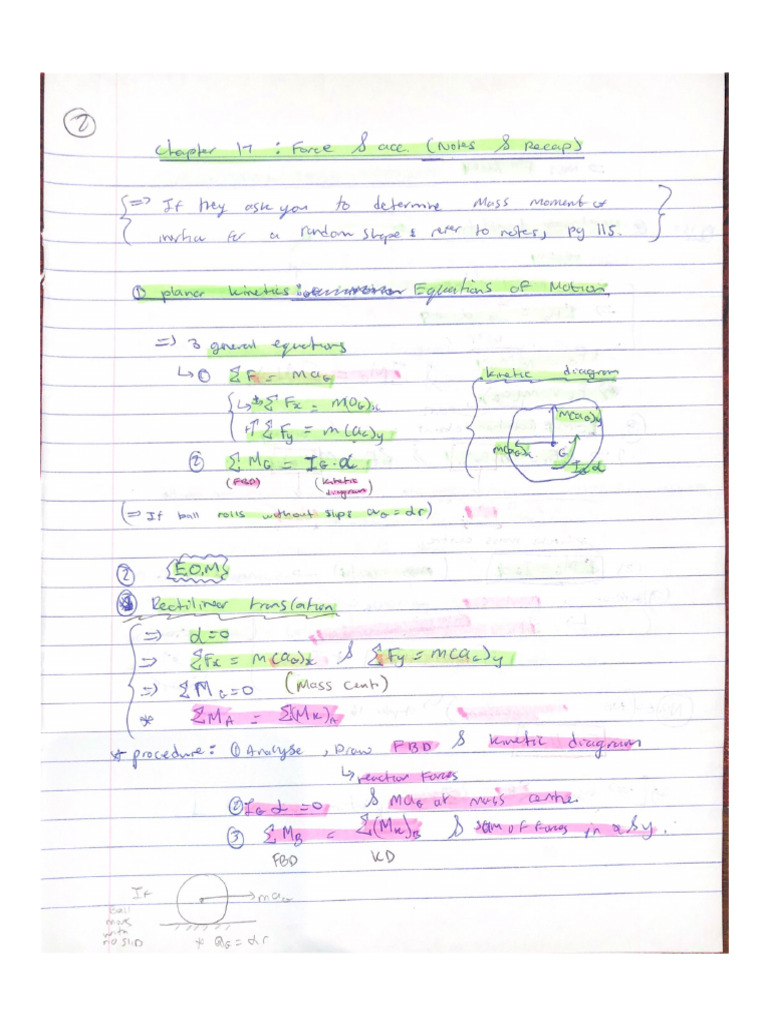 2
Chapter 17 : Force & acc. (Notes & Recap)
=> If they ask you to determine Mass Moment of
inertia for a random shape refer to notes, pg 115.
① planar kinetics: Equations of Motion
=> 3 general equations
↳ ① ΣF = maG
↳ →+ ΣFx = m(aG)x
+↑ ΣFy = m(aG)y
② ΣMG = IG·α
(FBD) (kinetic
diagram)
kinetic diagram
m(aG)y
m(aG)x G
IGα
(=> If ball rolls without slips aG = αr)
② E.O.M
Rectilinear translation
=> α=0
=> ΣFx = m(aG)x & ΣFy = m(aG)y
=> ΣMG=0 (Mass cent)
* ΣMA = Σ(MK)A
* procedure: ① Analyse, Draw FBD & kinetic diagram
↳ reaction forces
② IGα=0 & maG at mass centre.
③ ΣMB = Σ(MK)B & sum of forces in x & y.
FBD KD
If
Ball
move
with
no SLIP
maG
* aG = αr